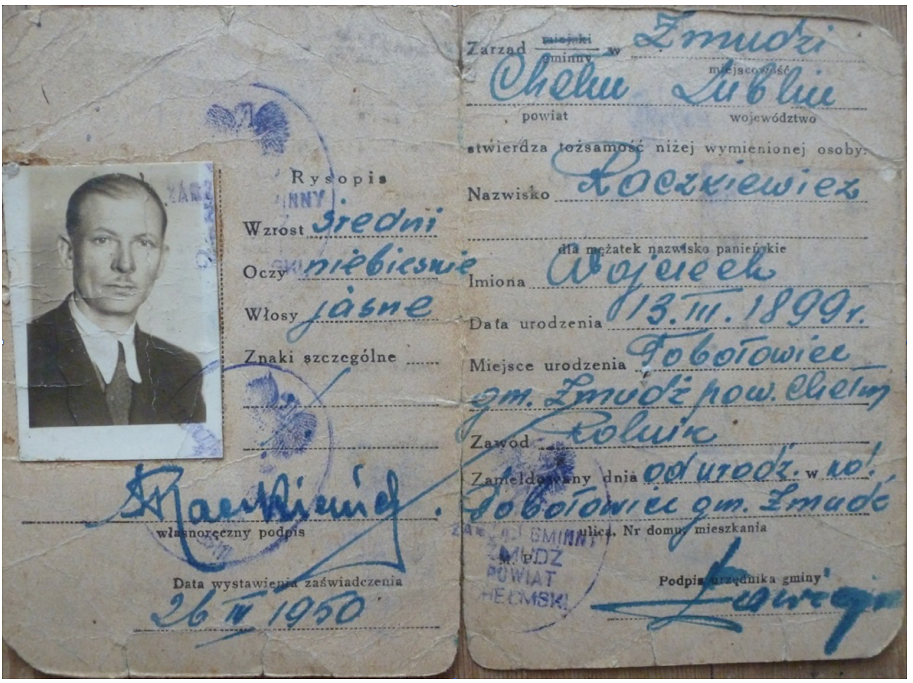 Rysopis
Wzrost średni
Oczy niebieskie
Włosy jasne
Znaki szczególne
własnoręczny podpis
Data wystawienia zaświadczenia
26 III 1950
Zarząd miejski w Żmudzi
gminny miejscowość
Chełm Lublin
powiat województwo
stwierdza tożsamość niżej wymienionej osoby:
Nazwisko Raczkiewicz
dla mężatek nazwisko panieńskie
Imiona Wojciech
Data urodzenia 13.III.1899r.
Miejsce urodzenia Pobołowiec
gm. Żmudź pow. Chełm
Zawód Rolnik
Zameldowany dnia od urodz. w kol.
Pobołowiec gm. Żmudź
ulica, Nr domu, mieszkania
M. P.
Podpis urzędnika gminy
ZARZĄD GMINNY
ŻMUDŹ
POWIAT
CHEŁMSKI